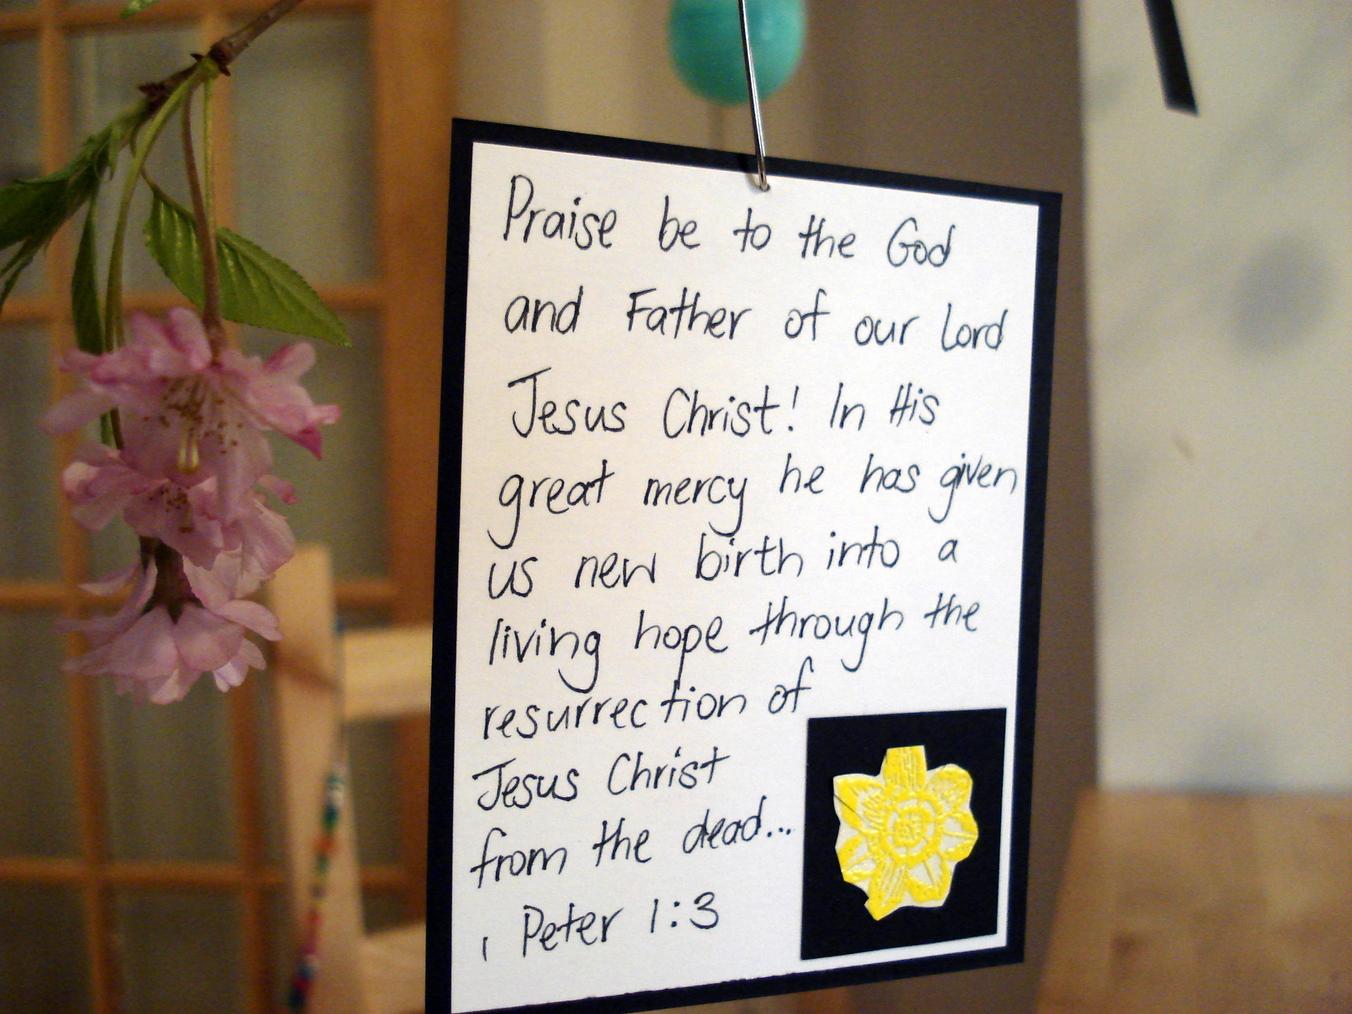 Praise be to the God
and Father of our Lord
Jesus Christ! In His
great mercy he has given
us new birth into a
living hope through the
resurrection of
Jesus Christ
from the dead...
1 Peter 1:3